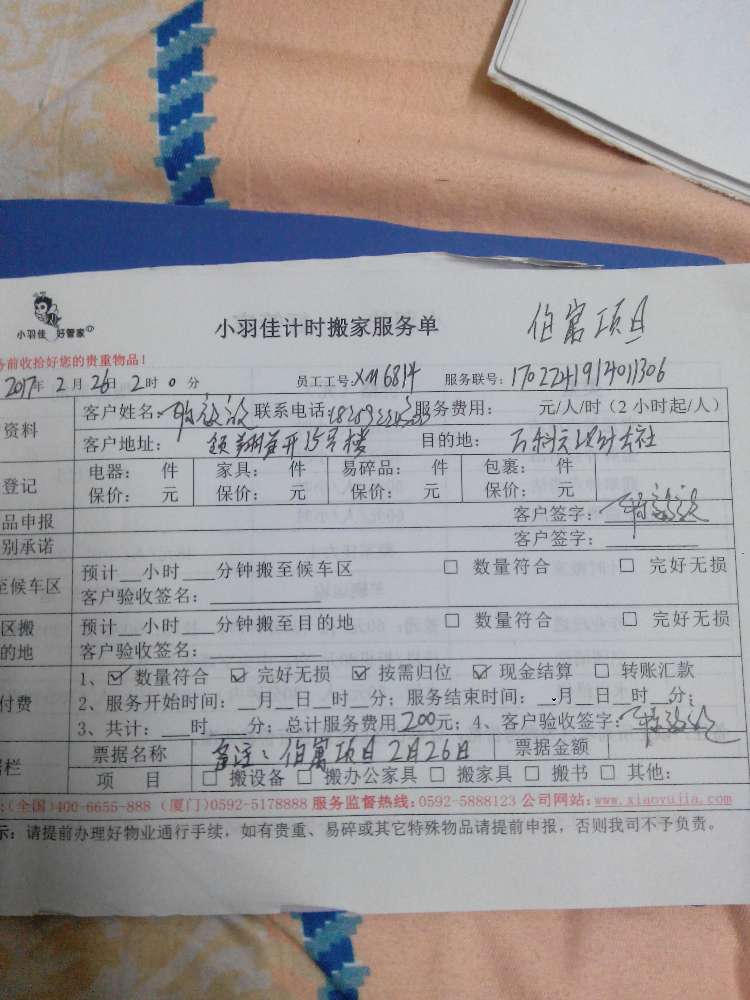 小羽佳 好管家
小羽佳计时搬家服务单 伯寓项目
务前收拾好您的贵重物品！
2017年 2月 26日 2时 0分 员工工号：XM6814 服务联号：1702241914011306
资料 客户姓名： 联系电话： 服务费用： 元/人/时（2 小时起/人）
客户地址： 15号楼 目的地： 万科云设计公社
登记 电器： 件 家具： 件 易碎品： 件 包裹： 件
保价： 元 保价： 元 保价： 元 保价： 元
品申报 客户签字：
别承诺 客户签字：
至候车区 预计__小时___分钟搬至候车区 □ 数量符合 □ 完好无损
客户验收签名：
区搬 预计__小时___分钟搬至目的地 □ 数量符合 □ 完好无损
的地 客户验收签名：
付费 1、☑ 数量符合 ☑ 完好无损 ☑ 按需归位 ☑ 现金结算 □ 转账汇款
2、服务开始时间：__月__日__时__分；服务结束时间：__月__日__时__分；
3、共计：___时___分；总计服务费用200元；4、客户验收签字：
栏 票据名称 备注：伯寓项目2月26日 票据金额
项 目 □ 搬设备 □ 搬办公家具 □ 搬家具 □ 搬书 □ 其他：
（全国）400-6655-888（厦门）0592-5178888 服务监督热线：0592-5888123 公司网站：www.xiaoyujia.com
示：请提前办理好物业通行手续，如有贵重、易碎或其它特殊物品请提前申报，否则我司不予负责。